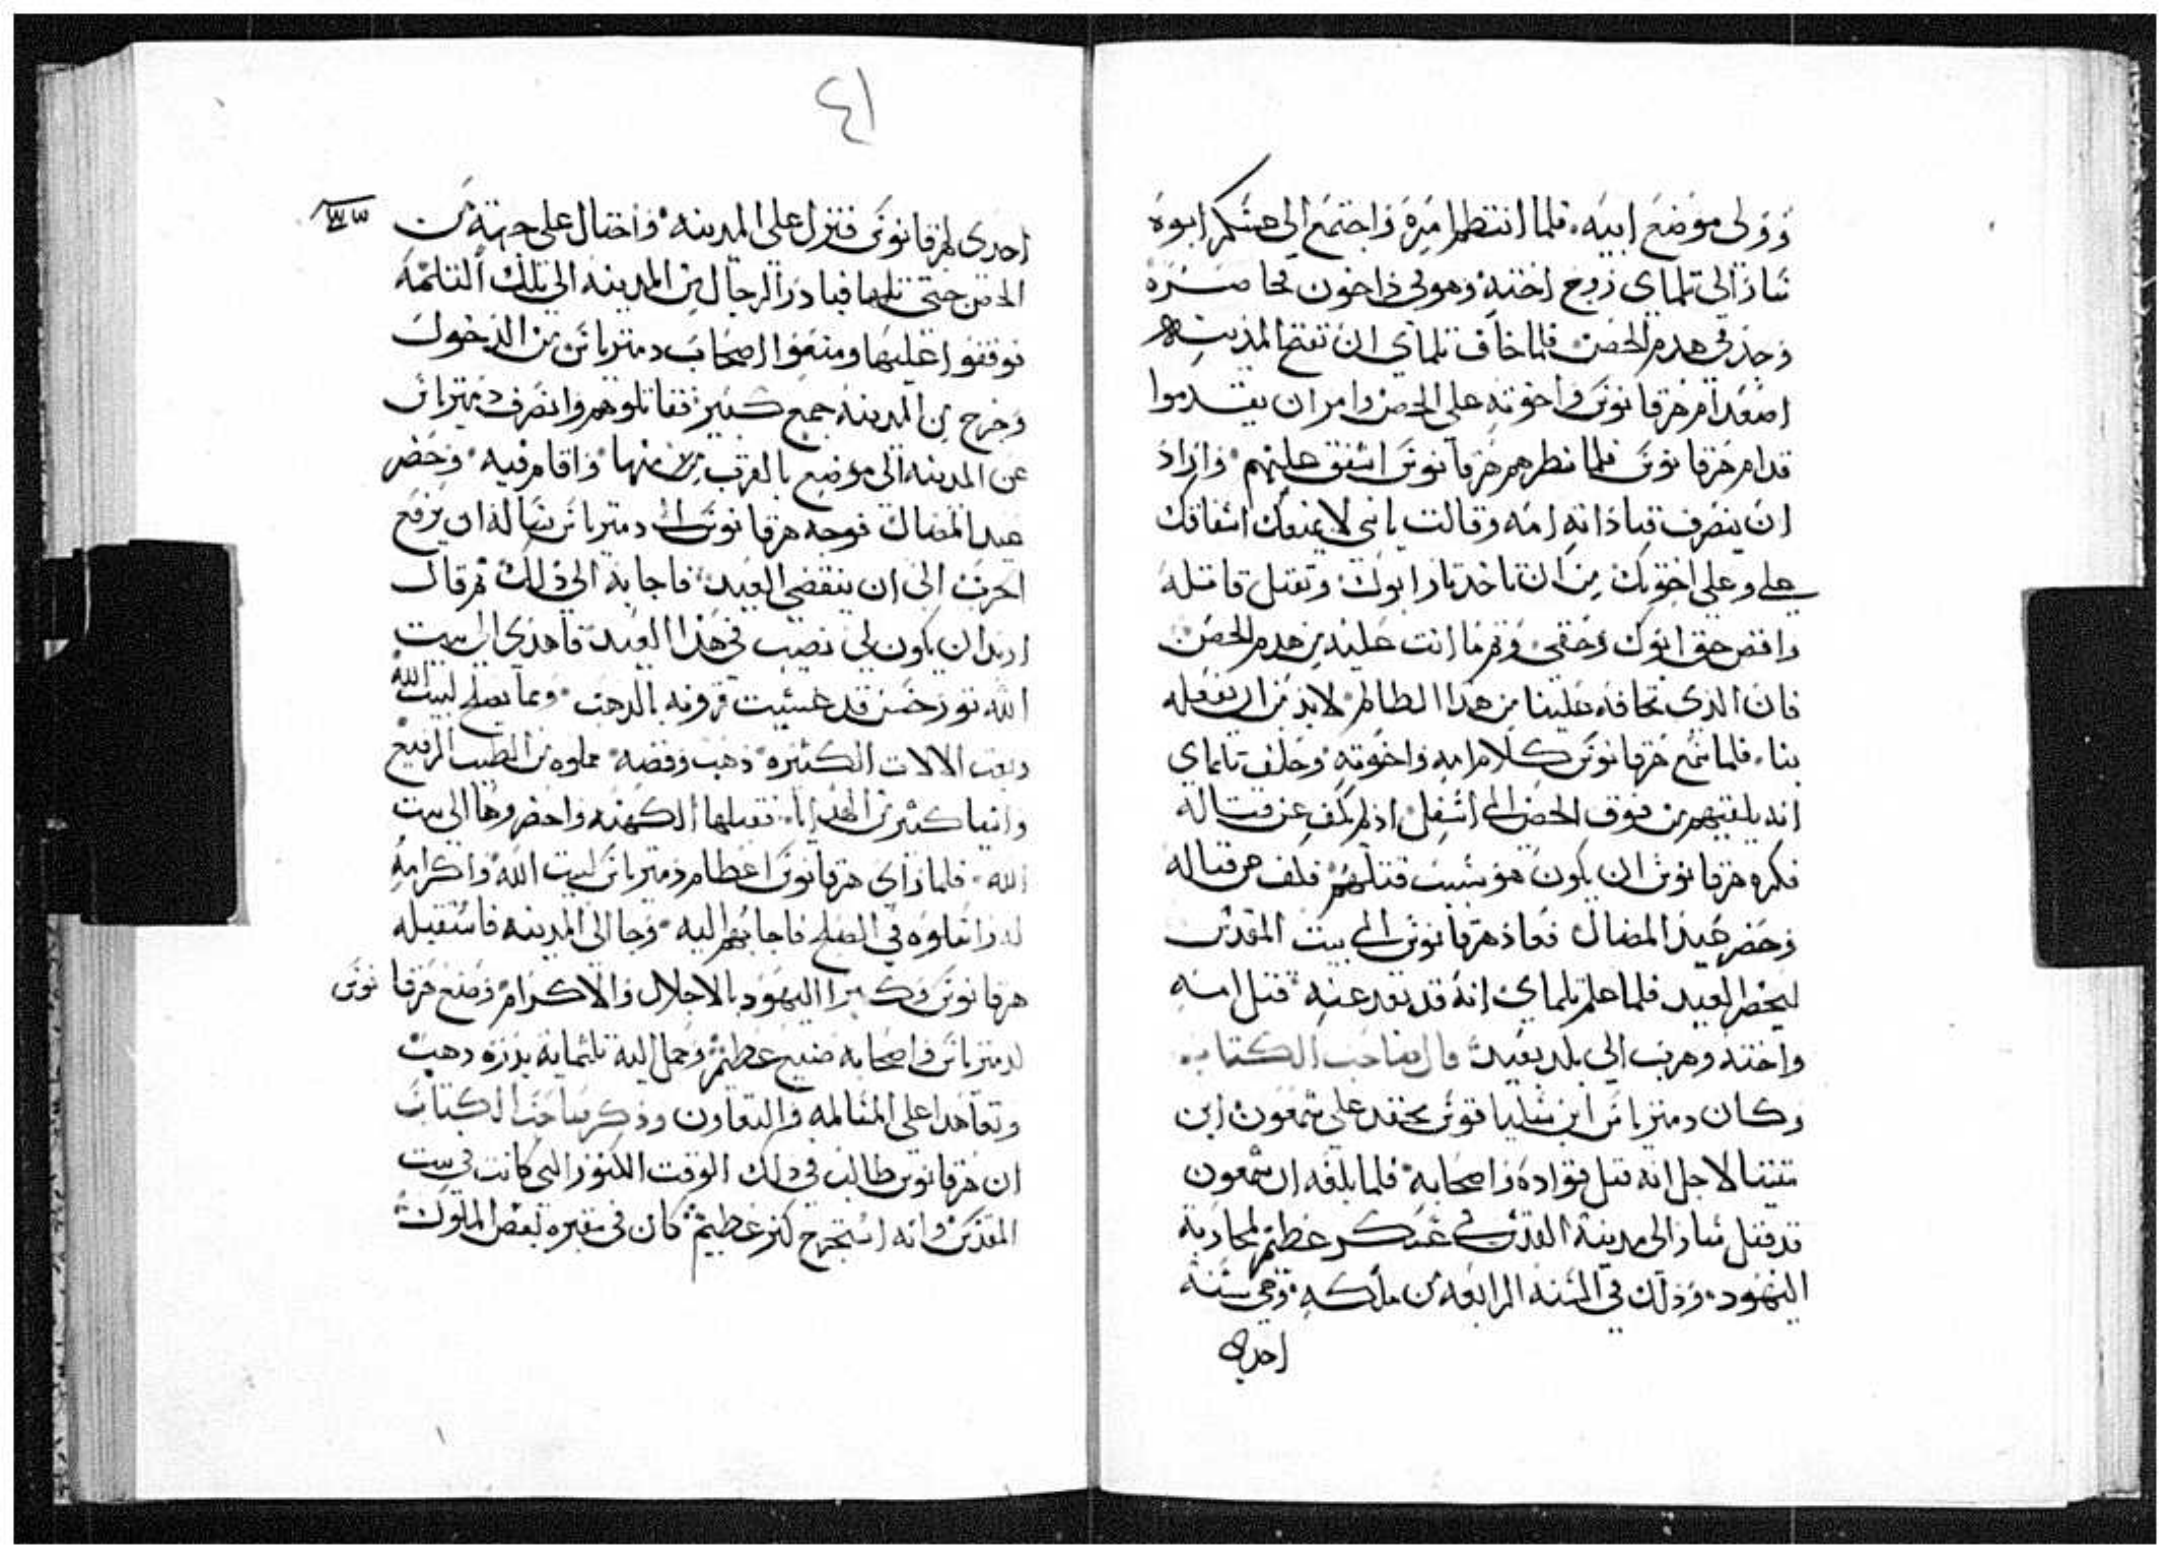 وولى موضع ابيه. فلما انتظم امره واجتمع الى عسكر ابوه
سار الى تلماي زوج اخته وهو في داخون فحاصره
وجد في هدم الحصن فلما خاف تلماي ان تفتح المدينه
اصعد ام هرقانوس واخوته على الحصن وامر ان يقدموا
قدام هرقانوس فلما نظرهم هرقانوس اشفق عليهم واراد
ان ينصرف فنادته امه وقالت يابني لا يمنعك اشفاقك
علي وعلى اخوتك من ان تاخد تار ابوك وتقتل قاتله
واقض حق ابوك وحقي وتم ما انت عليه من هدم الحصن
فان الدي نخافه علينا من هدا الظالم لابد من ان يفعله
بنا. فلما سمع هرقانوس كلام امه واخوته وحلف تلماي
انه يلقيهم من فوق الحصن الى اسفل اذ لم يكف عن قتاله
فكره هرقانوس ان يكون هو سبب قتلهم فكف عن قتاله
وحضر عيد المضال فعاد هرقانوس الى بيت المقدس
ليحضر العيد فلما علم تلماي انه قد بعد عنه قتل امه
واخته وهرب الى بلد بعيد قال صاحب الكتاب
وكان دمترياس ابن سلياقوس يحقد على شمعون ابن
متيتيا لاجل انه قتل قواده واصحابه فلما بلغه ان شمعون
قد قتل سار الى مدينة القدس في عسكر عظيم لمحاربة
اليهود. وذلك في السنه الرابعه من ملكه وهي سنة
احدى
٤١
احدى لهرقانوس فنزل على المدينه واحتال على جهة من
الحصن حتى ثلمها فبادر الرجال من المدينه الى تلك الثلمه
فوقفوا عليها ومنعوا اصحاب دمترياس من الدخول
وخرج من المدينه جمع كبير فقاتلوهم وانصرف دمترياس
عن المدينه الى موضع بالقرب منها واقام فيه وحضر
عيد المضال فوجه هرقانوس الى دمترياس يساله ان يرفع
الحرب الى ان ينقضي العيد فاجابه الى ذلك ثم قال
اريد ان يكون لي نصيب في هذا العيد فاهدى الى بيت
الله ثور حسن قد غشيت قرونه بالدهب ومما يصلح لبيت الله
وبعت الالات الكثيره دهب وفضه مملوه من الطيب الرفيع
واشيا كثير من الهدايا فقبلها الكهنه واحضروها الى بيت
الله. فلما راى هرقانوس اعظام دمترياس لبيت الله واكرامه
له راسلوه في الصلح فاجابهم اليه وجا الى المدينه فاستقبله
هرقانوس وكبرا اليهود بالاجلال والاكرام وصنع هرقانوس
لدمترياس واصحابه صنيع عظيم وحمل اليه ثلثمايه بدره دهب
وتعاهدا على المسالمه والتعاون وذكر صاحب الكتاب
ان هرقانوس طالب في ذلك الوقت الكنوز التي كانت في بيت
المقدس وانه استخرج كنز عظيم كان في مقبره بعض الملوك